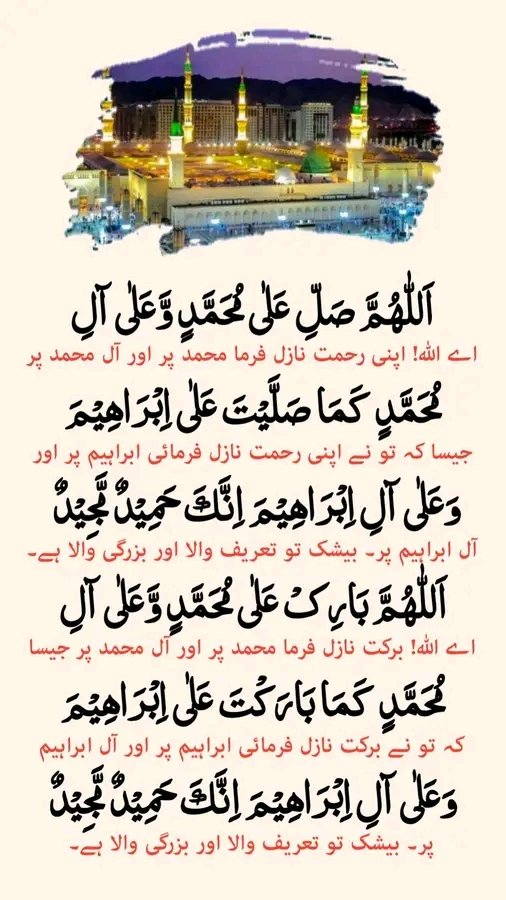 اَللّٰهُمَّ صَلِّ عَلٰى مُحَمَّدٍ وَّعَلٰى آلِ
اے اللہ! اپنی رحمت نازل فرما محمد پر اور آل محمد پر
مُحَمَّدٍ كَمَا صَلَّيْتَ عَلٰى اِبْرَاهِيْمَ
جیسا کہ تو نے اپنی رحمت نازل فرمائی ابراہیم پر اور
وَعَلٰى آلِ اِبْرَاهِيْمَ اِنَّكَ حَمِيْدٌ مَّجِيْدٌ
آل ابراہیم پر۔ بیشک تو تعریف والا اور بزرگی والا ہے۔
اَللّٰهُمَّ بَارِكْ عَلٰى مُحَمَّدٍ وَّعَلٰى آلِ
اے اللہ! برکت نازل فرما محمد پر اور آل محمد پر جیسا
مُحَمَّدٍ كَمَا بَارَكْتَ عَلٰى اِبْرَاهِيْمَ
کہ تو نے برکت نازل فرمائی ابراہیم پر اور آل ابراہیم
وَعَلٰى آلِ اِبْرَاهِيْمَ اِنَّكَ حَمِيْدٌ مَّجِيْدٌ
پر۔ بیشک تو تعریف والا اور بزرگی والا ہے۔